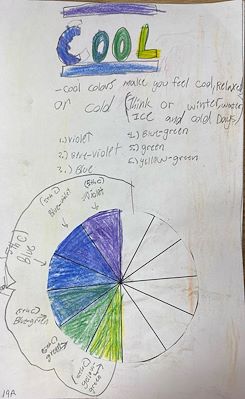 COOL
-Cool colors make you feel cool, Relaxed
or cold (Think or winter, water
ICE and cold Days.
1.) violet
2.) Blue-violet
3.) Blue
4.) Blue-green
5) green
6) yellow-green
Blue-violet
violet
Blue
Blue-green
green
yellow-green
19A